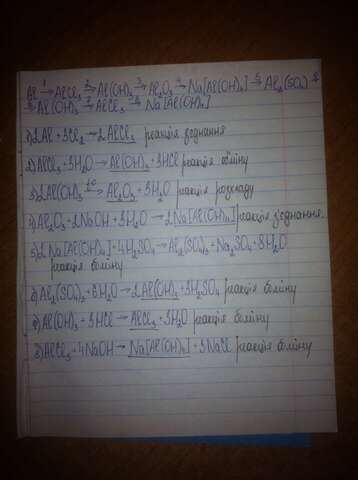 Al 1→ AlCl₃ 2→ Al(OH)₃ 3→ Al₂O₃ 4→ Na[Al(OH)₄] 5→ Al₂(SO₄)₃ 6→
6→ Al(OH)₃ 7→ AlCl₃ 8→ Na[Al(OH)₄]
1) 2Al + 3Cl₂ → 2AlCl₃ реакція зєднання
2) AlCl₃ + 3H₂O → Al(OH)₃ + 3HCl реакція обміну
3) 2Al(OH)₃ t°→ Al₂O₃ + 3H₂O реакція розкладу
4) Al₂O₃ + 2NaOH + 3H₂O → 2Na[Al(OH)₄] реакція зєднання
5) 2Na[Al(OH)₄] + 4H₂SO₄ → Al₂(SO₄)₃ + Na₂SO₄ + 8H₂O
реакція обміну
6) Al₂(SO₄)₃ + 6H₂O → 2Al(OH)₃ + 3H₂SO₄ реакція обміну
7) Al(OH)₃ + 3HCl → AlCl₃ + 3H₂O реакція обміну
8) AlCl₃ + 4NaOH → Na[Al(OH)₄] + 3NaCl реакція обміну